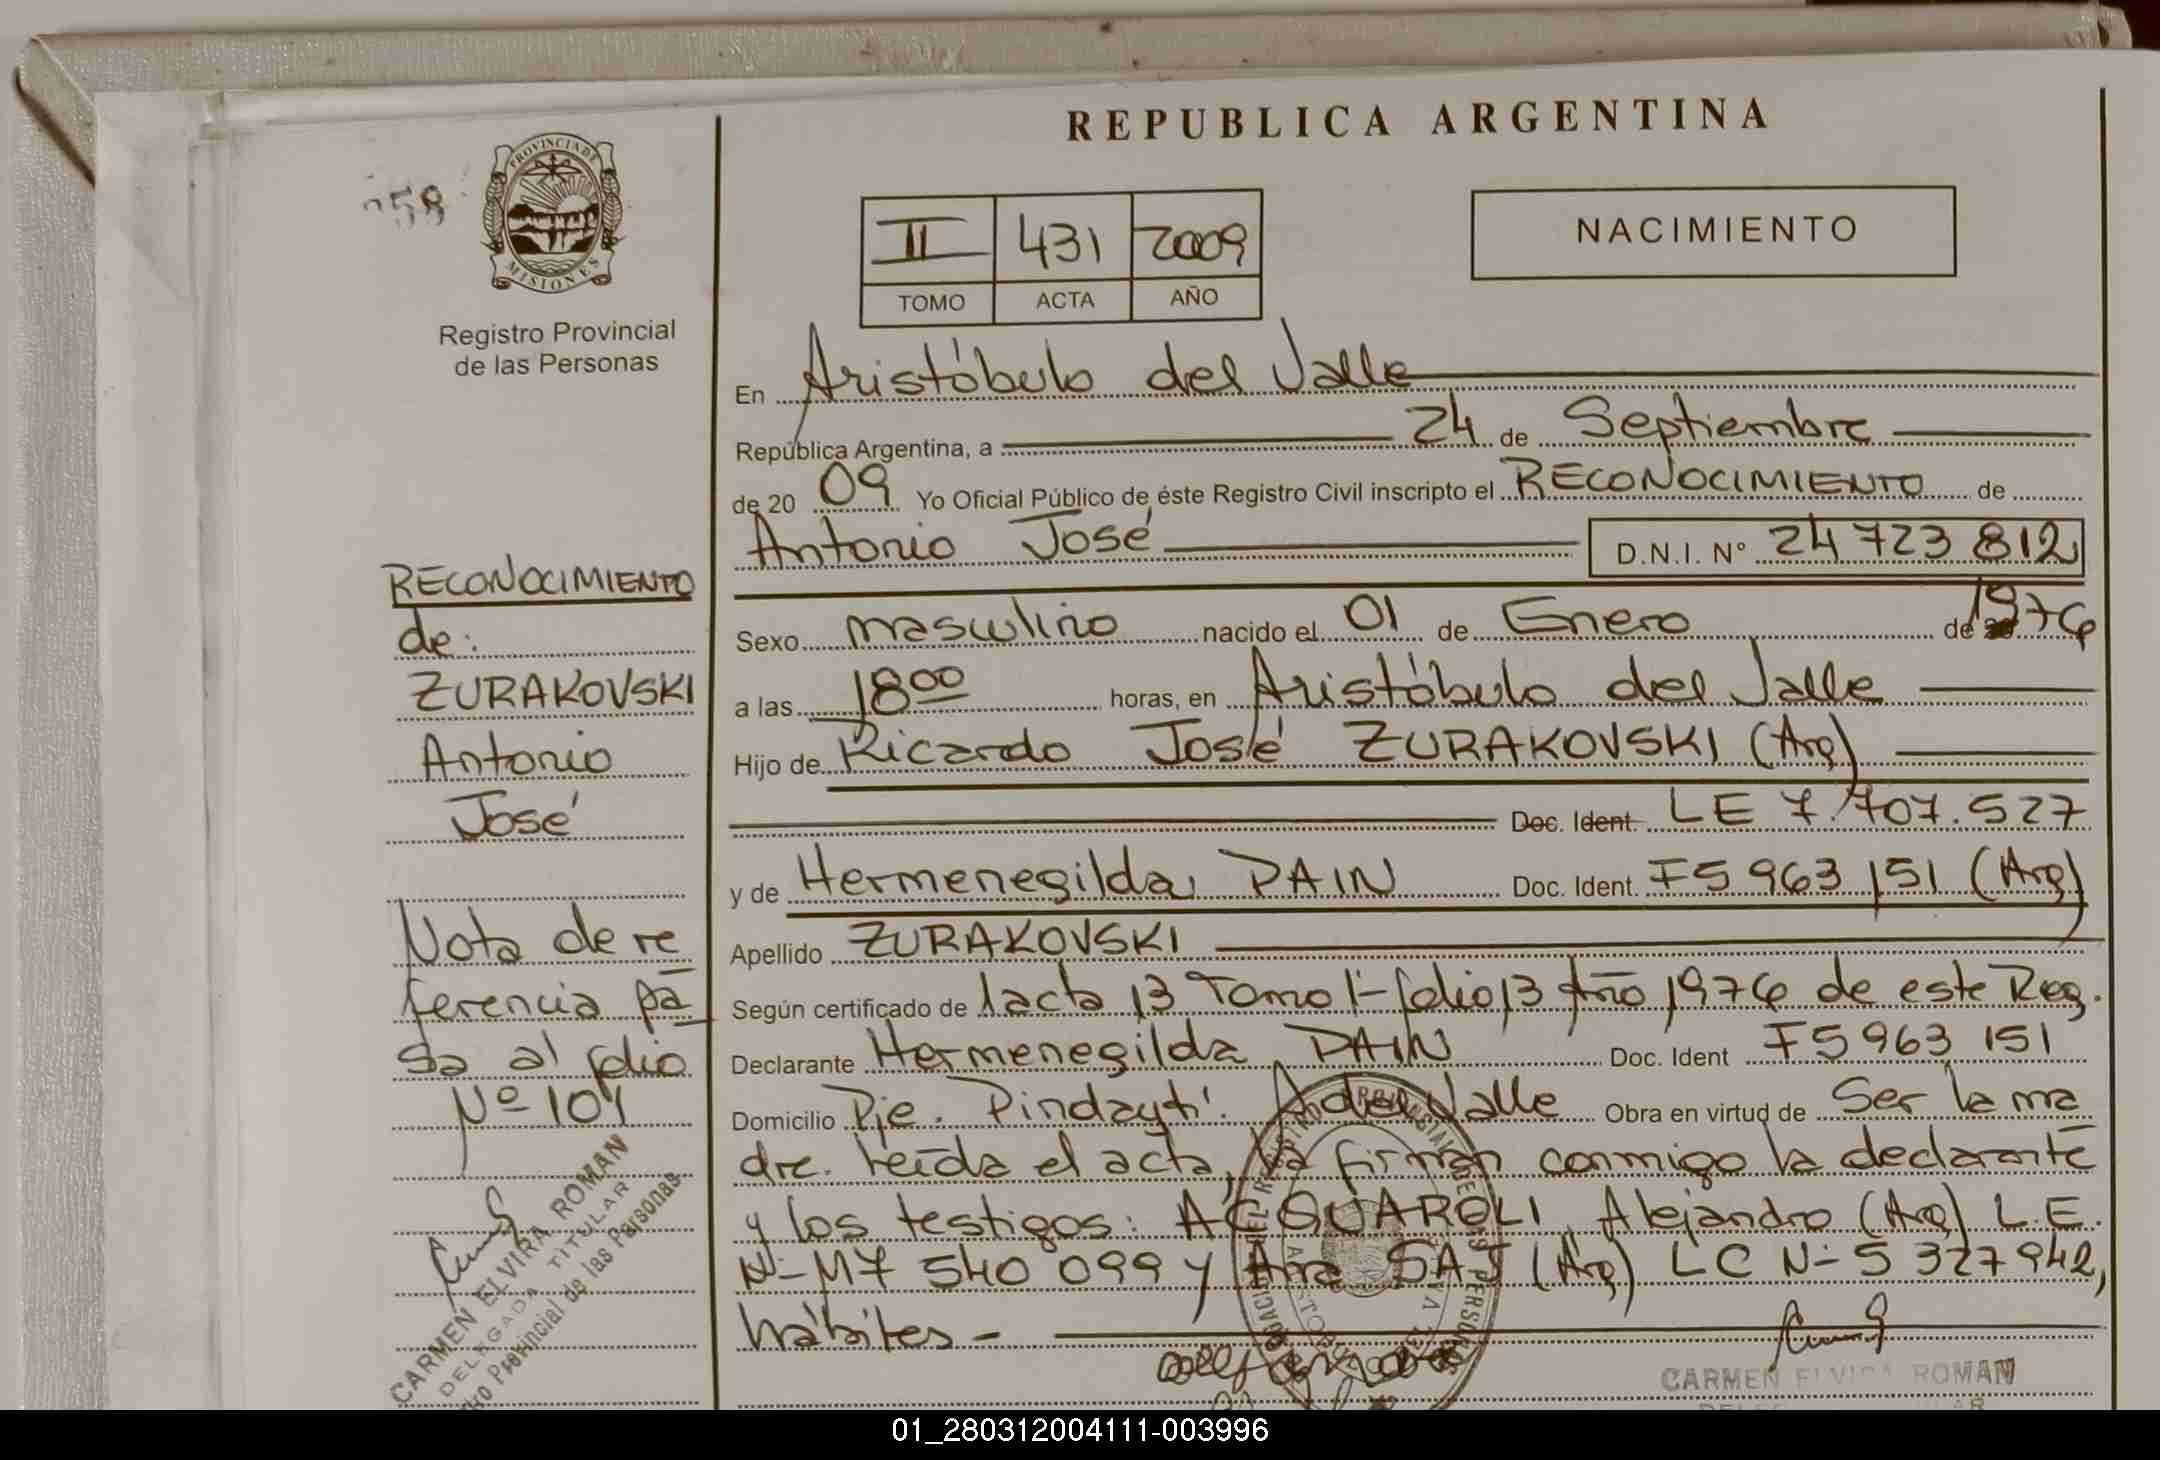 REPUBLICA ARGENTINA
58
PROVINCIA DE
MISIONES
Registro Provincial
de las Personas
II 431 2009
TOMO ACTA AÑO
NACIMIENTO
En Aristóbulo del Valle
República Argentina, a 24 de Septiembre
de 20 09 Yo Oficial Público de éste Registro Civil inscripto el RECONOCIMIENTO de
Antonio José D.N.I. Nº 24 723 812
Sexo masculino nacido el 01 de Enero de 1976
a las 18 00 horas, en Aristóbulo del Valle
Hijo de Ricardo José ZURAKOVSKI (Arg)
Doc. Ident. LE 7.707.527
y de Hermenegilda PAIN Doc. Ident. F5 963 151 (Arg)
Apellido ZURAKOVSKI
Según certificado de 1 acta 13 Tomo 1- folio 13 Año 1976 de este Reg.
Declarante Hermenegilda PAIN Doc. Ident F5 963 151
Domicilio Pje. Pindaytí. A del Valle Obra en virtud de Ser la ma
dre. Leída el acta, la firman conmigo la declarante
y los testigos: ACQUAROLI, Alejandro (Arg) L.E.
Nº- M7 540 099 y Ana SAJ (Arg) LC N- 5 327 942,
hábiles -
CARMEN ELVIRA ROMAN
RECONOCIMIENTO
de:
ZURAKOVSKI
Antonio
José
Nota de re
ferencia pa
sa al folio
Nº 101
CARMEN ELVIRA ROMAN
DELEGADA TITULAR
Provincial de las Personas
01_280312004111-003996